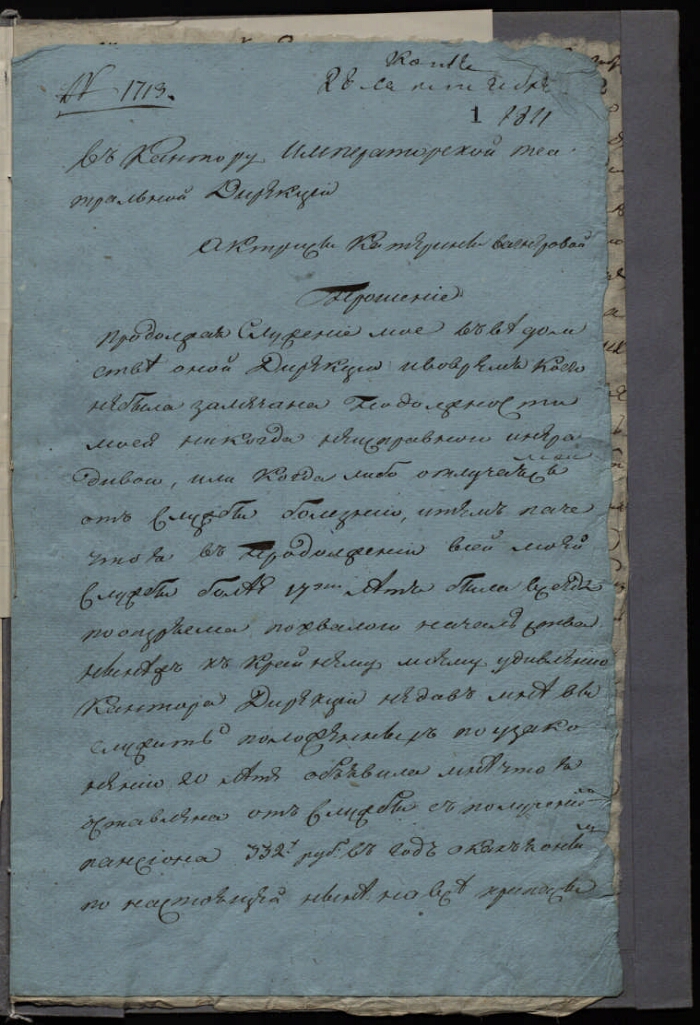 № 1713.
1 1811
въ Кантору Императорской теа-
тральной Дирекціи
Актрисы Катерины
Прошеніе
Продолжая Служеніе мое въ ведом
стве оной Дирекціи ивовремя коего
небыла замечена по должности
моей никогда неисправною инера
дивою, или когда либо отлучае
отъ Службы болезнію, итемъ паче
что я въ Продолженіи всей моей
Службы более 17ти летъ была всегда
поощряема похвалою начальства
ныне жъ къ крайнему моему удивленію
Кантора Дирекціи недавъ мне вы
служить положенныхъ поузако
ненію 20 летъ объявила мне что я
оставлена отъ Службы съ полученіемъ
пансіона 332 руб. въ годъ
по настоящей ныне на все